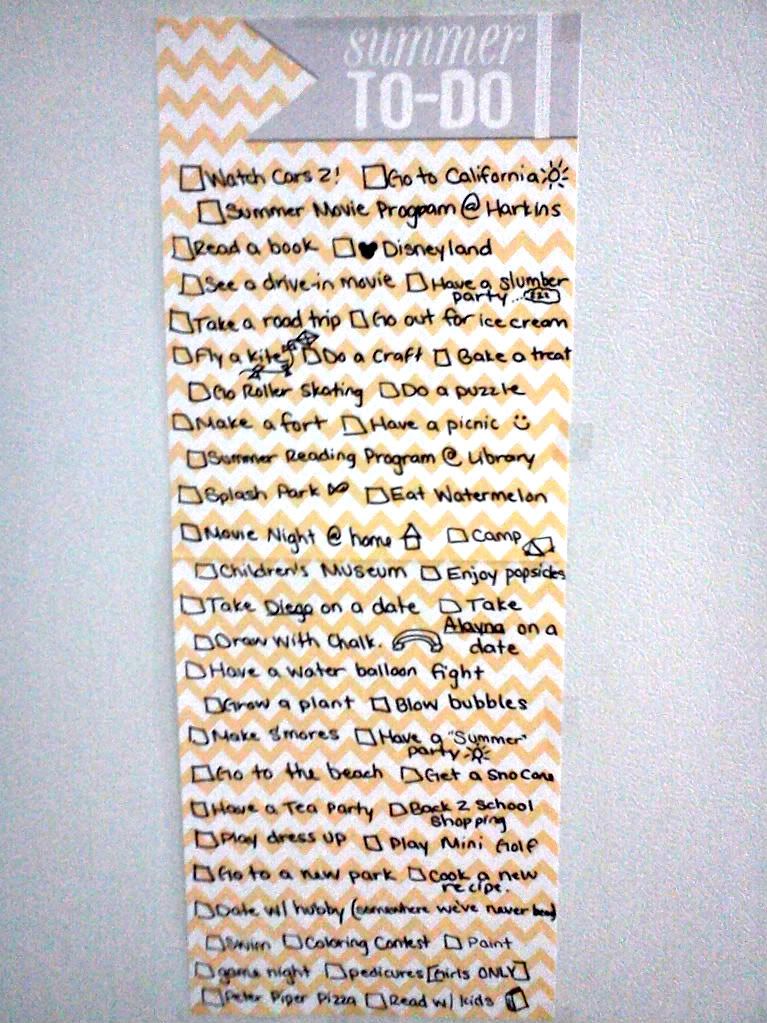 summer
TO-DO
Watch Cars 2! Go to California
Summer Movie Program @ Harkins
Read a book ♥ Disneyland
See a drive-in movie Have a slumber
party... zzz
Take a road trip Go out for ice cream
Fly a kite Do a craft Bake a treat
Go Roller Skating Do a puzzle
Make a fort Have a picnic
Summer Reading Program @ Library
Splash Park Eat Watermelon
Movie Night @ home Camp
Children's Museum Enjoy popsicles
Take Diego on a date Take
Alayna on a
Draw with Chalk. date
Have a water balloon fight
Grow a plant Blow bubbles
Make s'mores Have a "Summer"
party
Go to the beach Get a Sno Cone
Have a Tea Party Back 2 School
Shopping
Play dress up Play Mini Golf
Go to a new park Cook a new
recipe.
Date w/ hubby (somewhere we've never been)
Swim Coloring Contest Paint
game night pedicures [Girls ONLY]
Peter Piper Pizza Read w/ kids